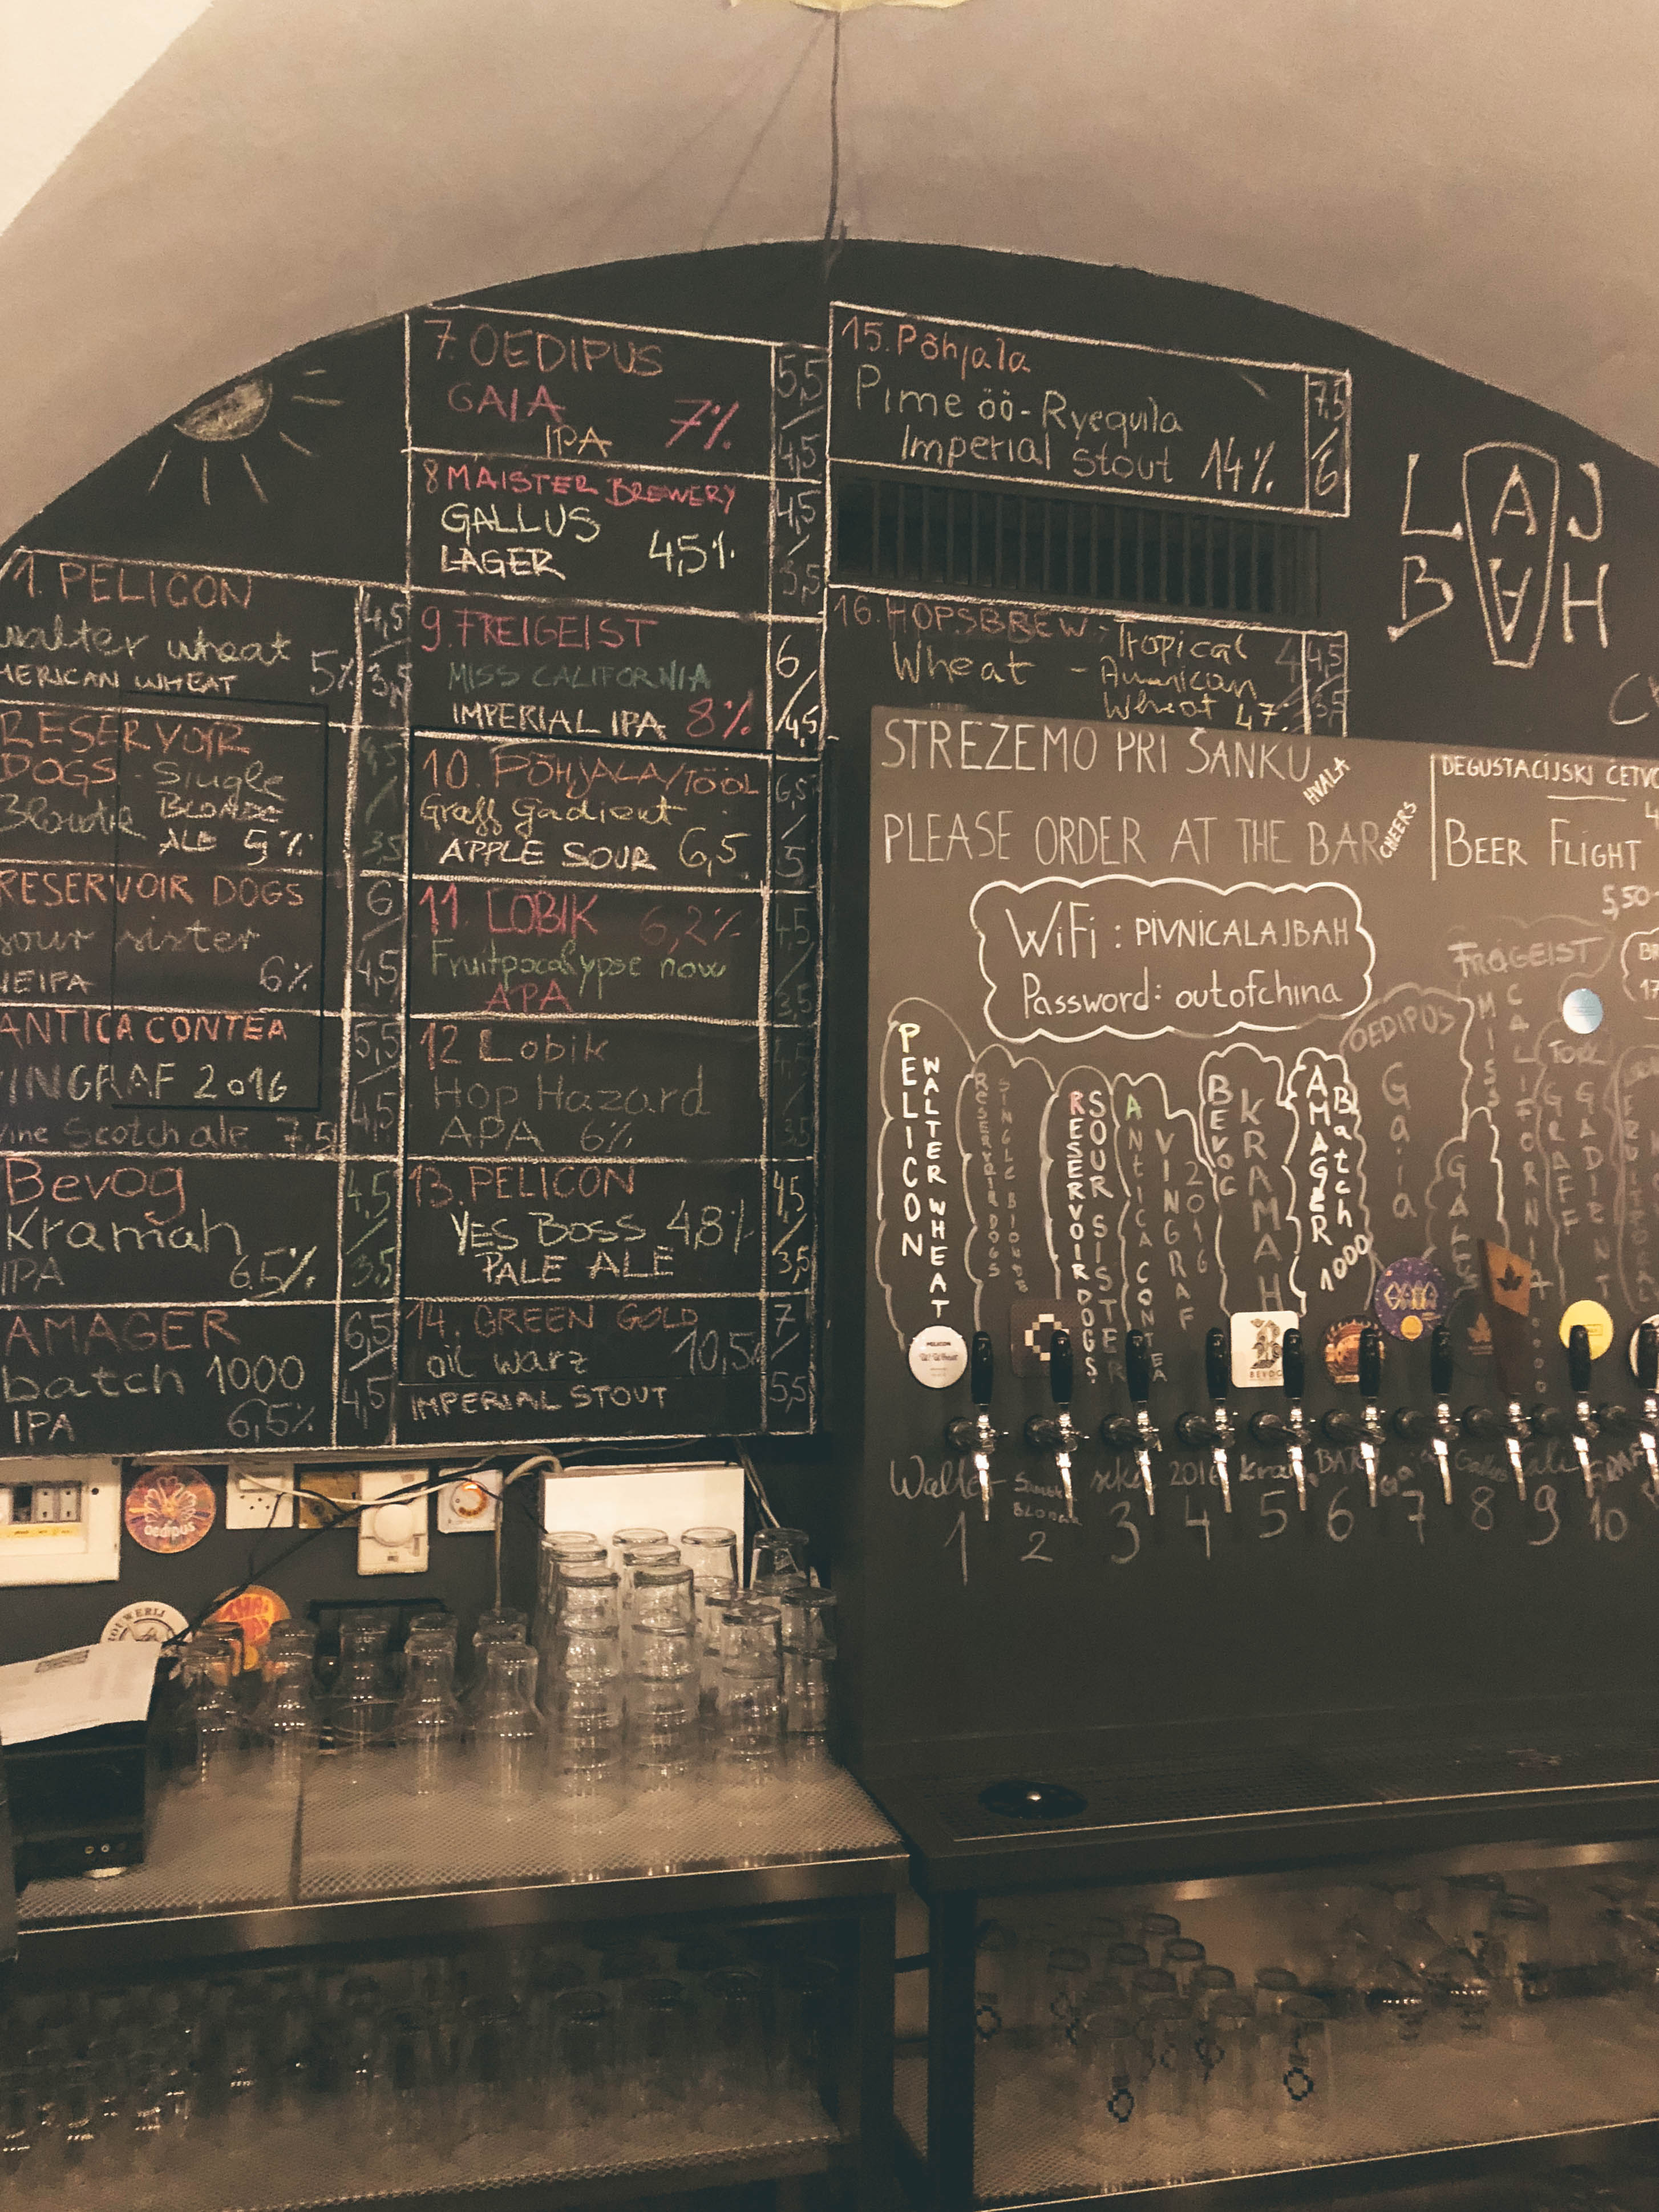 1. PELICON
walter wheat
MERICAN WHEAT 5%
4,5
3,5
RESERVOIR
DOGS - Single
Blondie BLONDE
ALE 5%
4,5
3,5
RESERVOIR DOGS
sour sister
NEIPA 6%
6
4,5
ANTICA CONTEA
VINGRAF 2016
Wine Scotch ale 7,5%
5,5
4,5
Bevog
Kramah
IPA 6.5%
4,5
3,5
AMAGER
batch 1000
IPA 6,5%
6,5
4,5
7. OEDIPUS
GAIA
IPA 7%
5,5
4,5
8 MAISTER BREWERY
GALLUS
LAGER 4,5%
4,5
3,5
9. FREIGEIST
MISS CALIFORNIA
IMPERIAL IPA 8%
6
4,5
10. PÕHJALA/TÖÖL
Graff Gadient
APPLE SOUR 6,5
6,5
5
11. LOBIK 6,2%
Fruitpocalypse now
APA
4,5
3,5
12 Lobik
Hop Hazard
APA 6%
4,5
3,5
13. PELICON
YES BOSS 4,8%
PALE ALE
4,5
3,5
14. GREEN GOLD
oil warz 10,5%
IMPERIAL STOUT
7
5,5
15. Põhjala
Pime öö - Ryequila
Imperial stout 14%
7,5
6
16. HOPSBREW - Tropical
Wheat - American
Wheat 4,7
4,5
3,5
LAJ
BAH
STREŽEMO PRI ŠANKU
HVALA
PLEASE ORDER AT THE BAR
CHEERS
DEGUSTACIJSKI ČETVO
BEER FLIGHT
5,50
WiFi : PIVNICALAJBAH
Password: outofchina
PELICON
WALTER WHEAT
RESERVOIR DOGS
SINGLE BLONDE
RESERVOIR DOGS
SOUR SISTER
ANTICA CONTEA
VINGRAF
2016
BEVOG
KRAMAH
AMAGER
Batch
1000
OEDIPUS
Gaia
GALLUS
FRAGEIST
MISS
CALIFORNIA
TOOL
GRAFF
GADIENT
GAIA
PELICON
BEVOG
Walter
2016
Gallus
1
2
3
4
5
6
7
8
9
10
oedipus